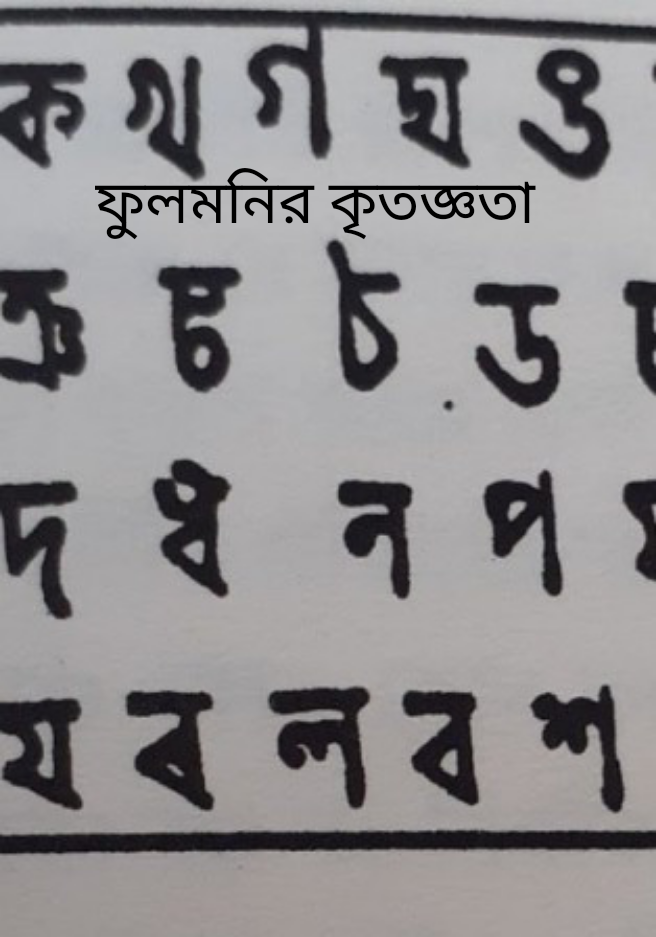 ক খ গ ঘ ঙ
ফুলমনির কৃতজ্ঞতা
ঞ ট ঠ ড
দ ধ ন প
য ৰ ল ব শ